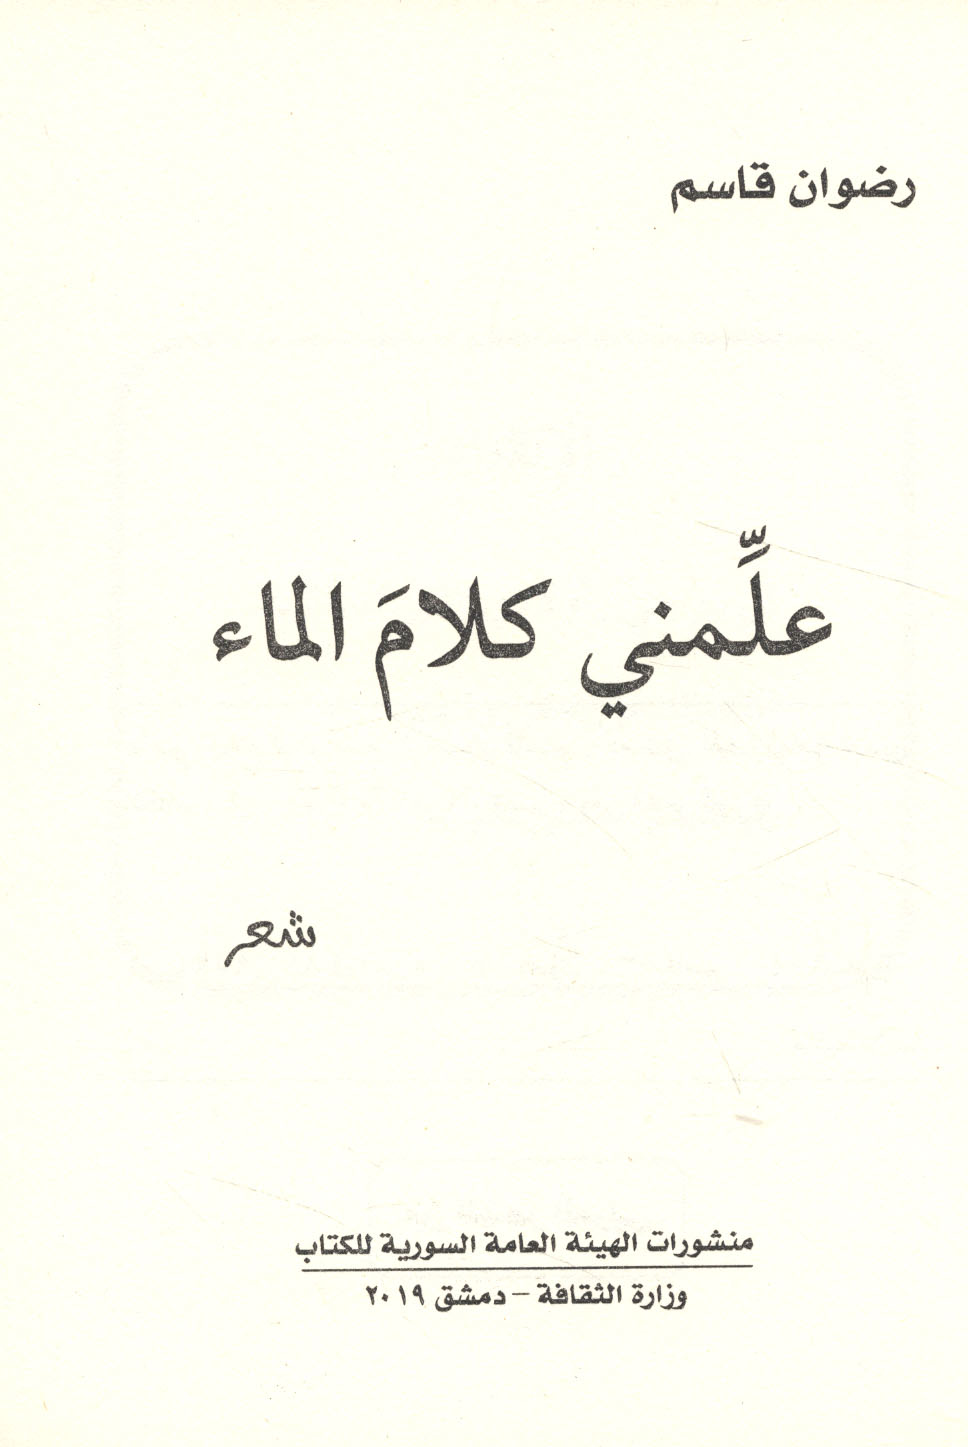 رضوان قاسم
علِّمني كلامَ الماء
شعر
منشورات الهيئة العامة السورية للكتاب
وزارة الثقافة - دمشق ٢٠١٩